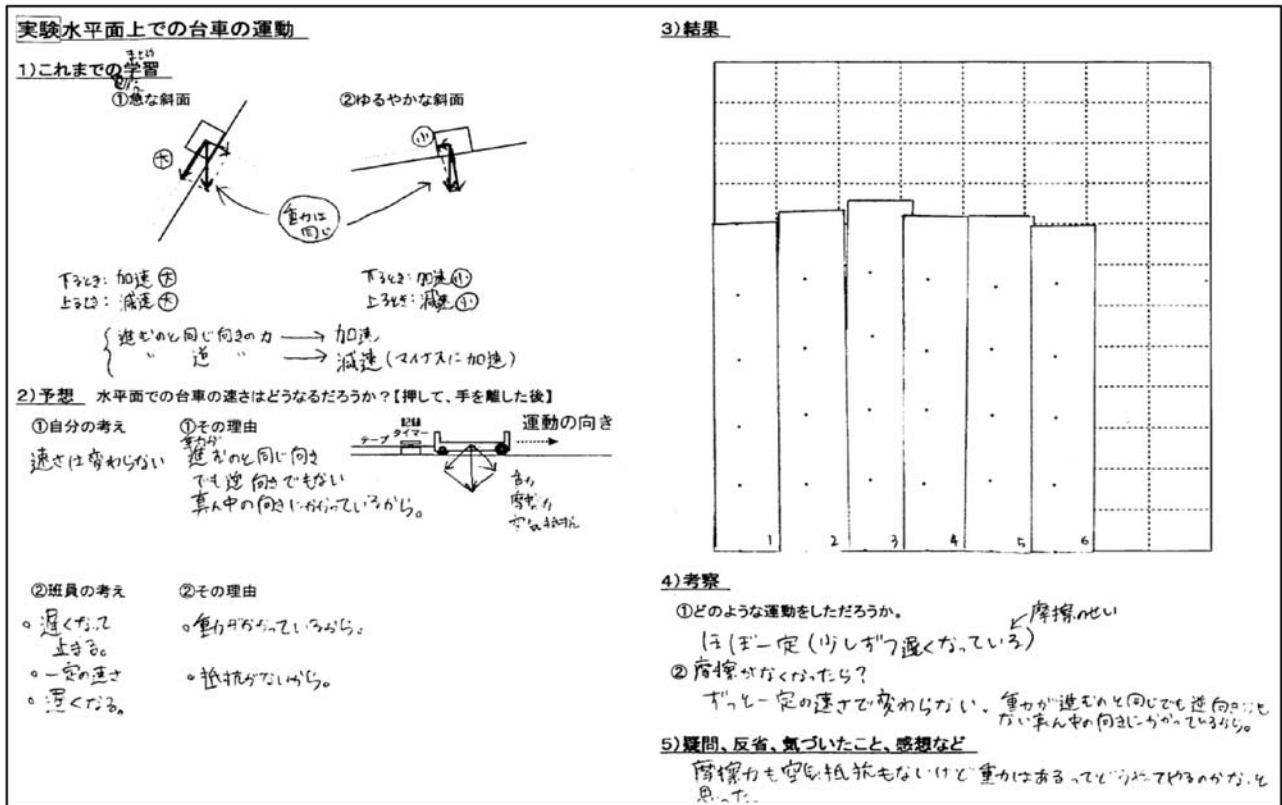 実験 水平面上での台車の運動
1)これまでの学習
まとめ
①急な斜面
②ゆるやかな斜面
大
小
重力は
同じ
下るとき:加速大
上るとき:減速大
下るとき:加速小
上るとき:減速小
進むのと同じ向きの力 → 加速
〃 逆 〃 → 減速(マイナスに加速)
2)予想 水平面での台車の速さはどうなるだろうか?【押して、手を離した後】
①自分の考え
速さは変わらない
①その理由
重力が
進むのと同じ向き
でも逆向きでもない
真ん中の向きにかかっているから。
テープ
記録
タイマー
運動の向き
重力
摩擦力
空気抵抗
②班員の考え
②その理由
。遅くなって
止まる。
。重力がかかっているから。
。一定の速さ
。抵抗がないから。
。遅くなる。
3)結果
1
2
3
4
5
6
4)考察
①どのような運動をしただろうか。
摩擦のせい
ほぼ一定(少しずつ遅くなっている)
②摩擦がなくなったら?
ずっと一定の速さで変わらない。重力が進むのと同じでも逆向きでも
ない真ん中の向きにかかっているから。
5)疑問、反省、気づいたこと、感想など
摩擦力も空気抵抗もないけど重力はあるってどうやってやるのかな、と
思った。